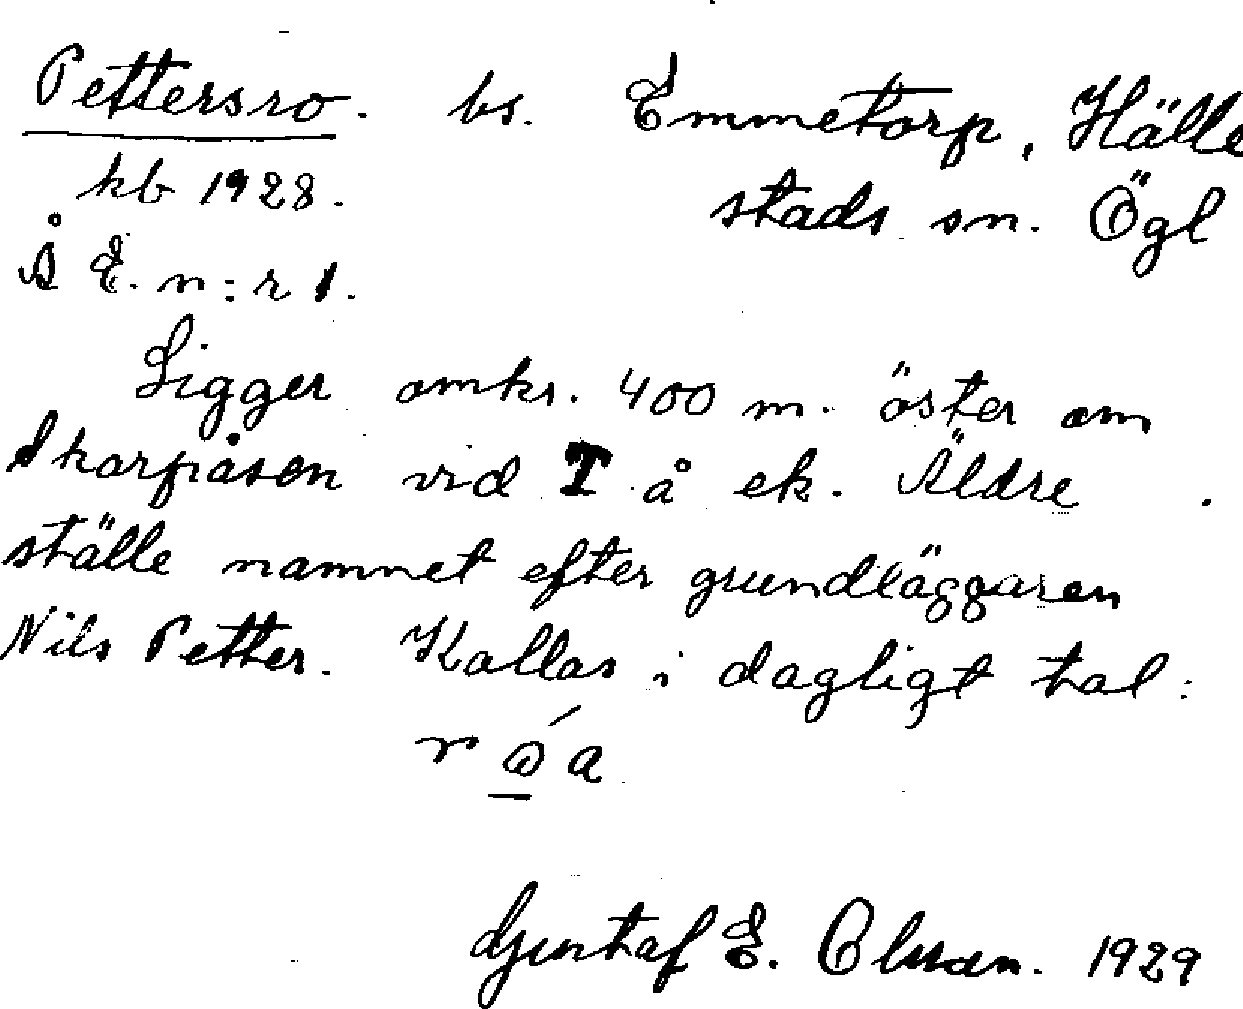 Pettersro. bs. Emmetorp, Hälle
kb 1928. stads sn. Ögl
Å E. n:r 1.
Ligger omkr. 400 m. öster om
Skarpåsen vid T å ek. Äldre
ställe namnet efter grundläggaren
Nils Petter. Kallas i dagligt tal:
róa
Gustaf E. Olsson. 1929